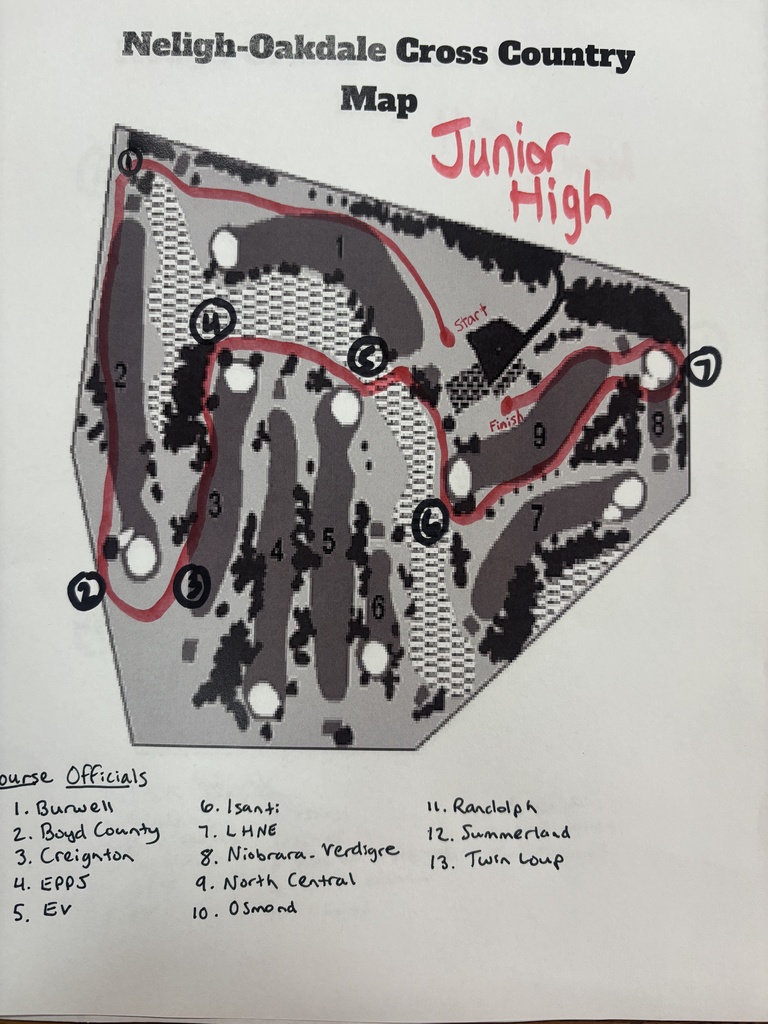 Neligh-Oakdale Cross Country
Map
Junior
High
1
1
Start
4
5
7
2
Finish
9
8
3
6
7
4
5
2
3
6
ourse Officials
1. Burwell
2. Boyd County
3. Creignton
4. EPPJ
5. EV
6. Isanti
7. LHNE
8. Niobrara-Verdigre
9. North Central
10. Osmond
11. Randolph
12. Summerland
13. Twin Loup